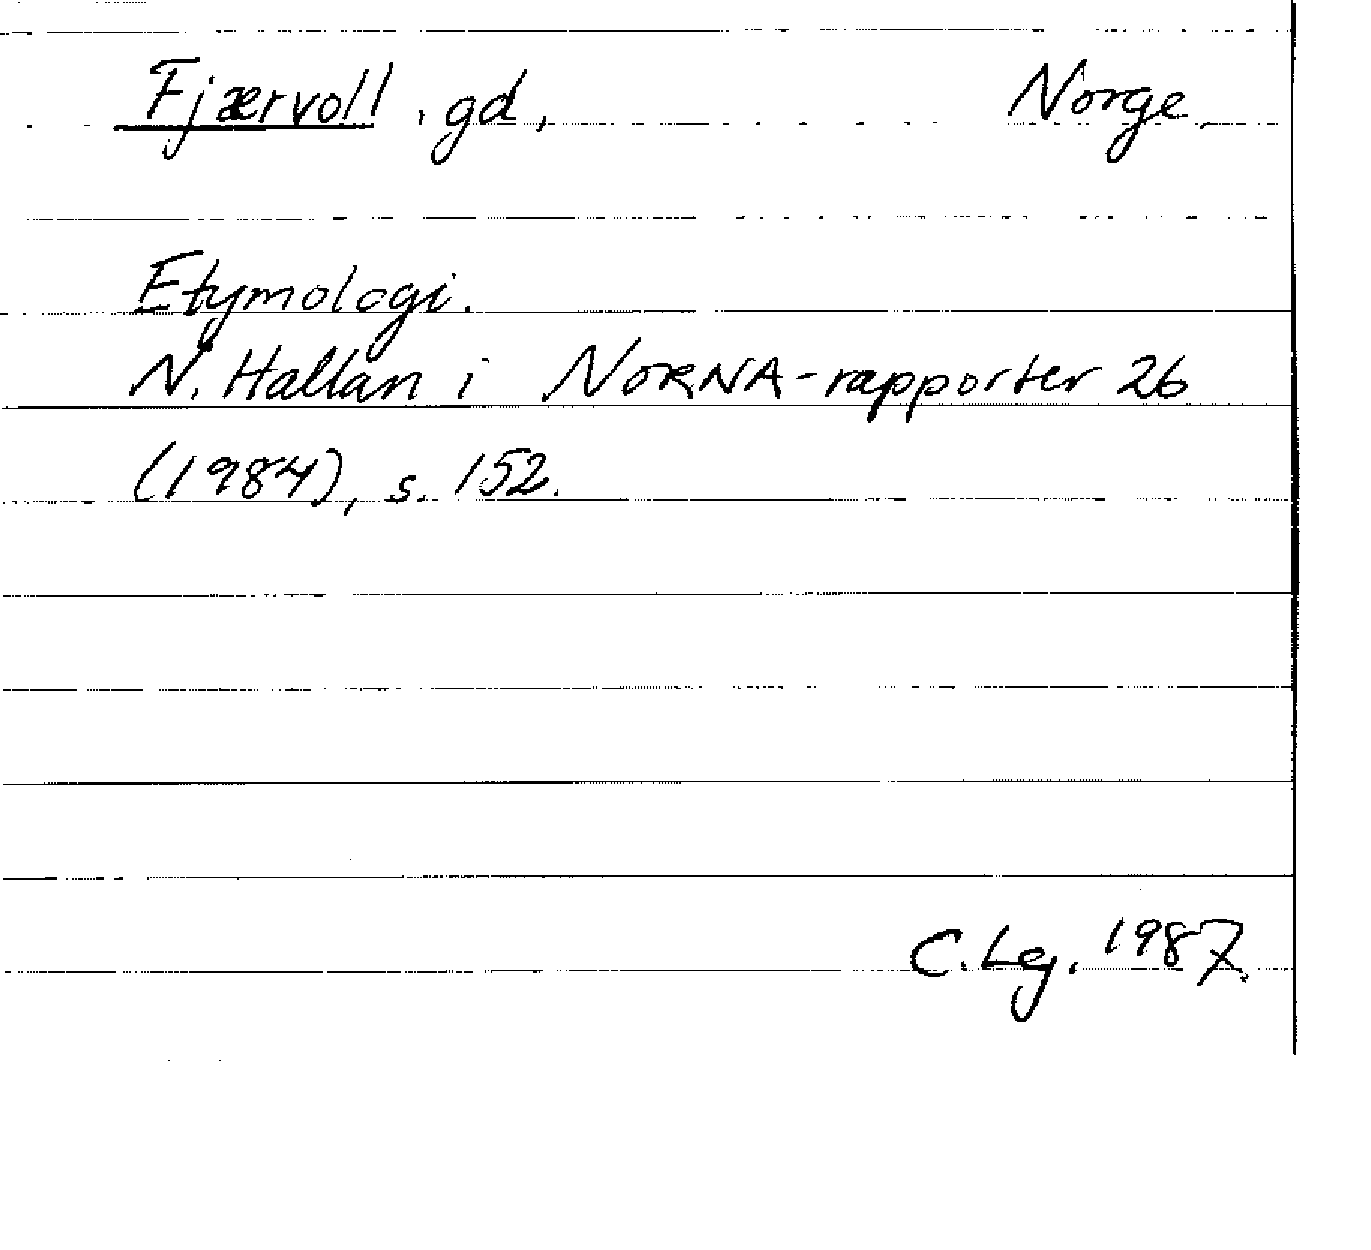 Fjærvoll, gd, Norge.
Etymologi.
N. Hallan i NORNA-rapporter 26
(1984), s. 152.
C. Lej. 1987.